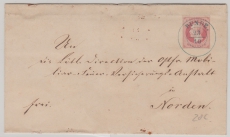 An
die Lobl. Direction der Ostfr. Mobi-
liar-Feuer-Versicherungs-Anstalt
in
frei. Norden.